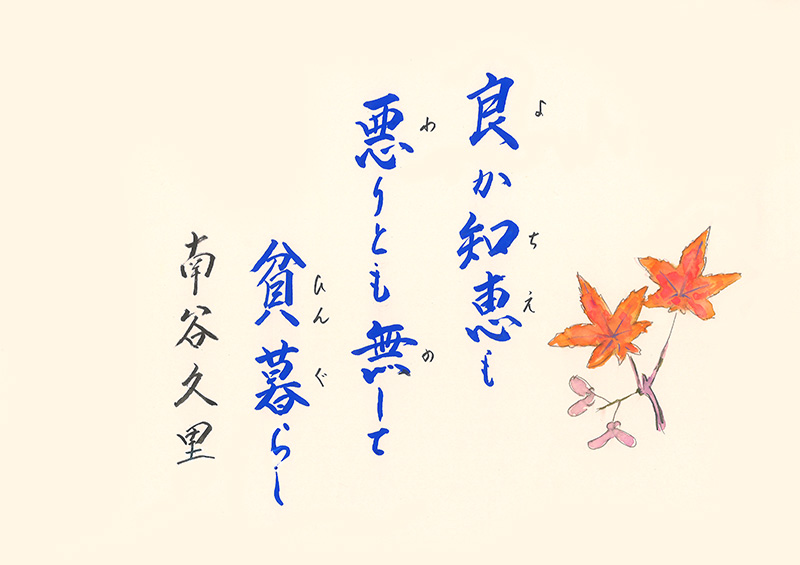 良か知恵も
よ
ちえ
悪りとも無して
わ
の
貧暮らし
ひんぐ
南谷久里